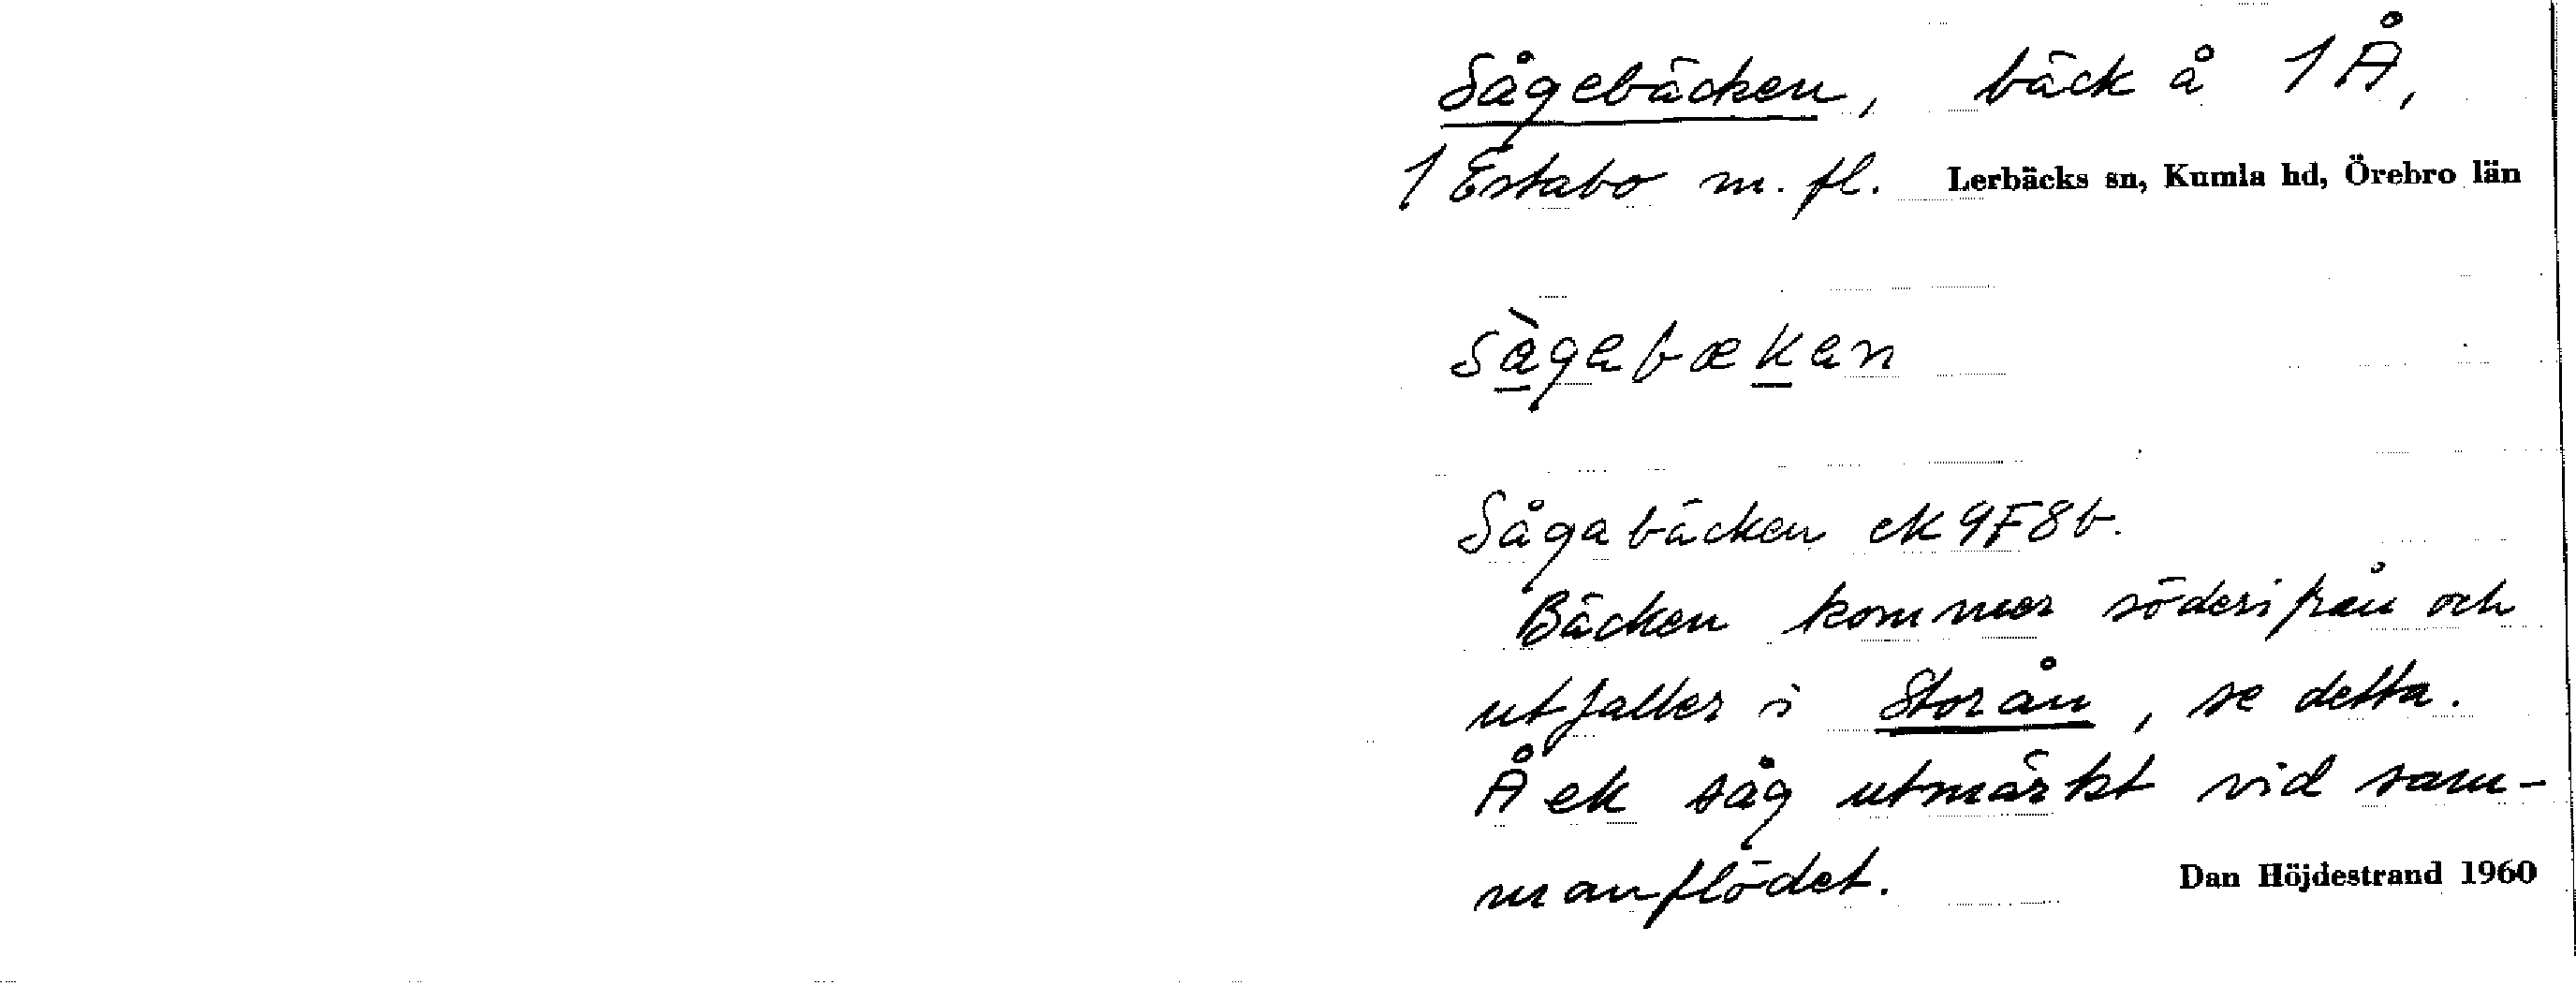 Sågebäcken, bäck å 1 Å,
1 Estabo m. fl. Lerbäcks sn, Kumla hd, Örebro län
sàgabækan
Sågabäcken ek 9F8b.
Bäcken kommer söderifrån och
utfaller i Storån, se detta.
Å ek såg utmärkt vid sam-
manflödet. Dan Höjdestrand 1960